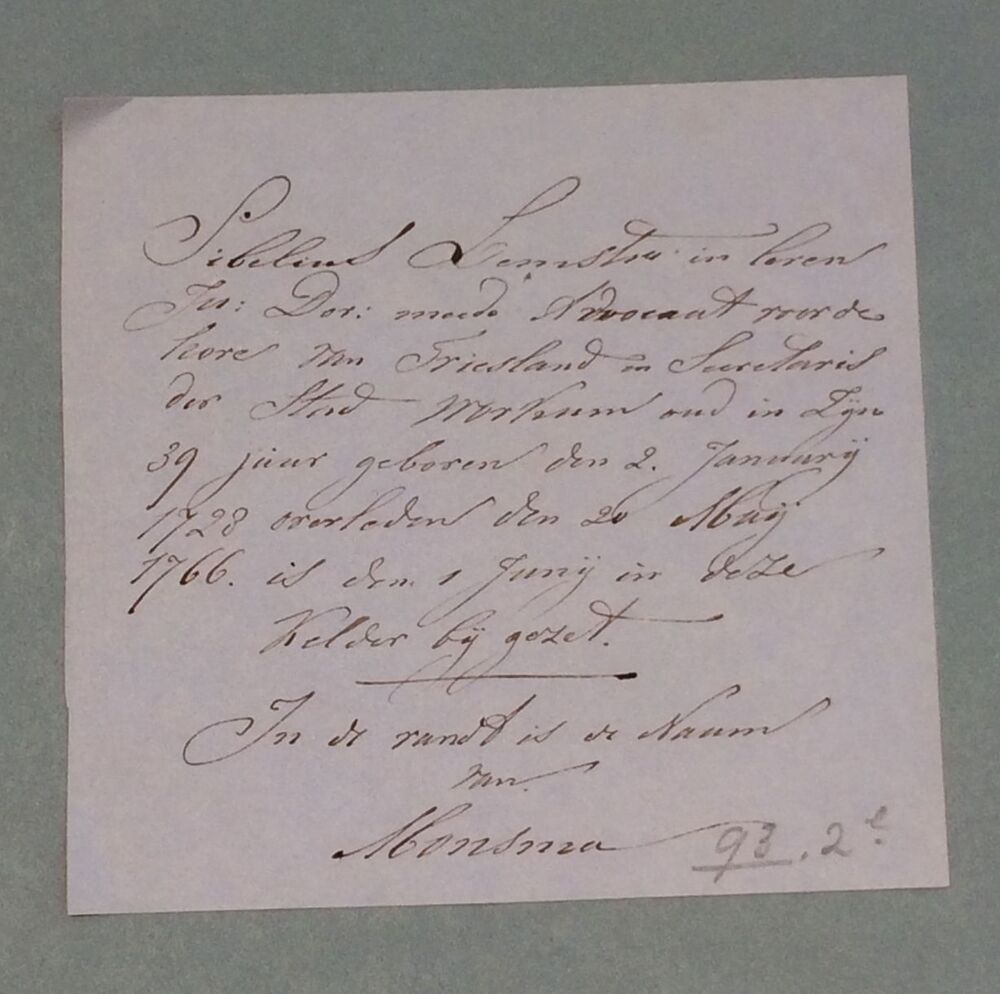 Sibelius Lemstra in leven
Jur: Dor: meede Advocaat voor de
hove van Friesland en Secretaris
der Stad Workum oud in Zijn
39 jaar geboren den 2. Januarij
1728 overleden den 20 Maij
1766. is den 1 Junij in deze
Kelder bij gezet.
In de randt is de Naam
van
Monsma
93. 2e